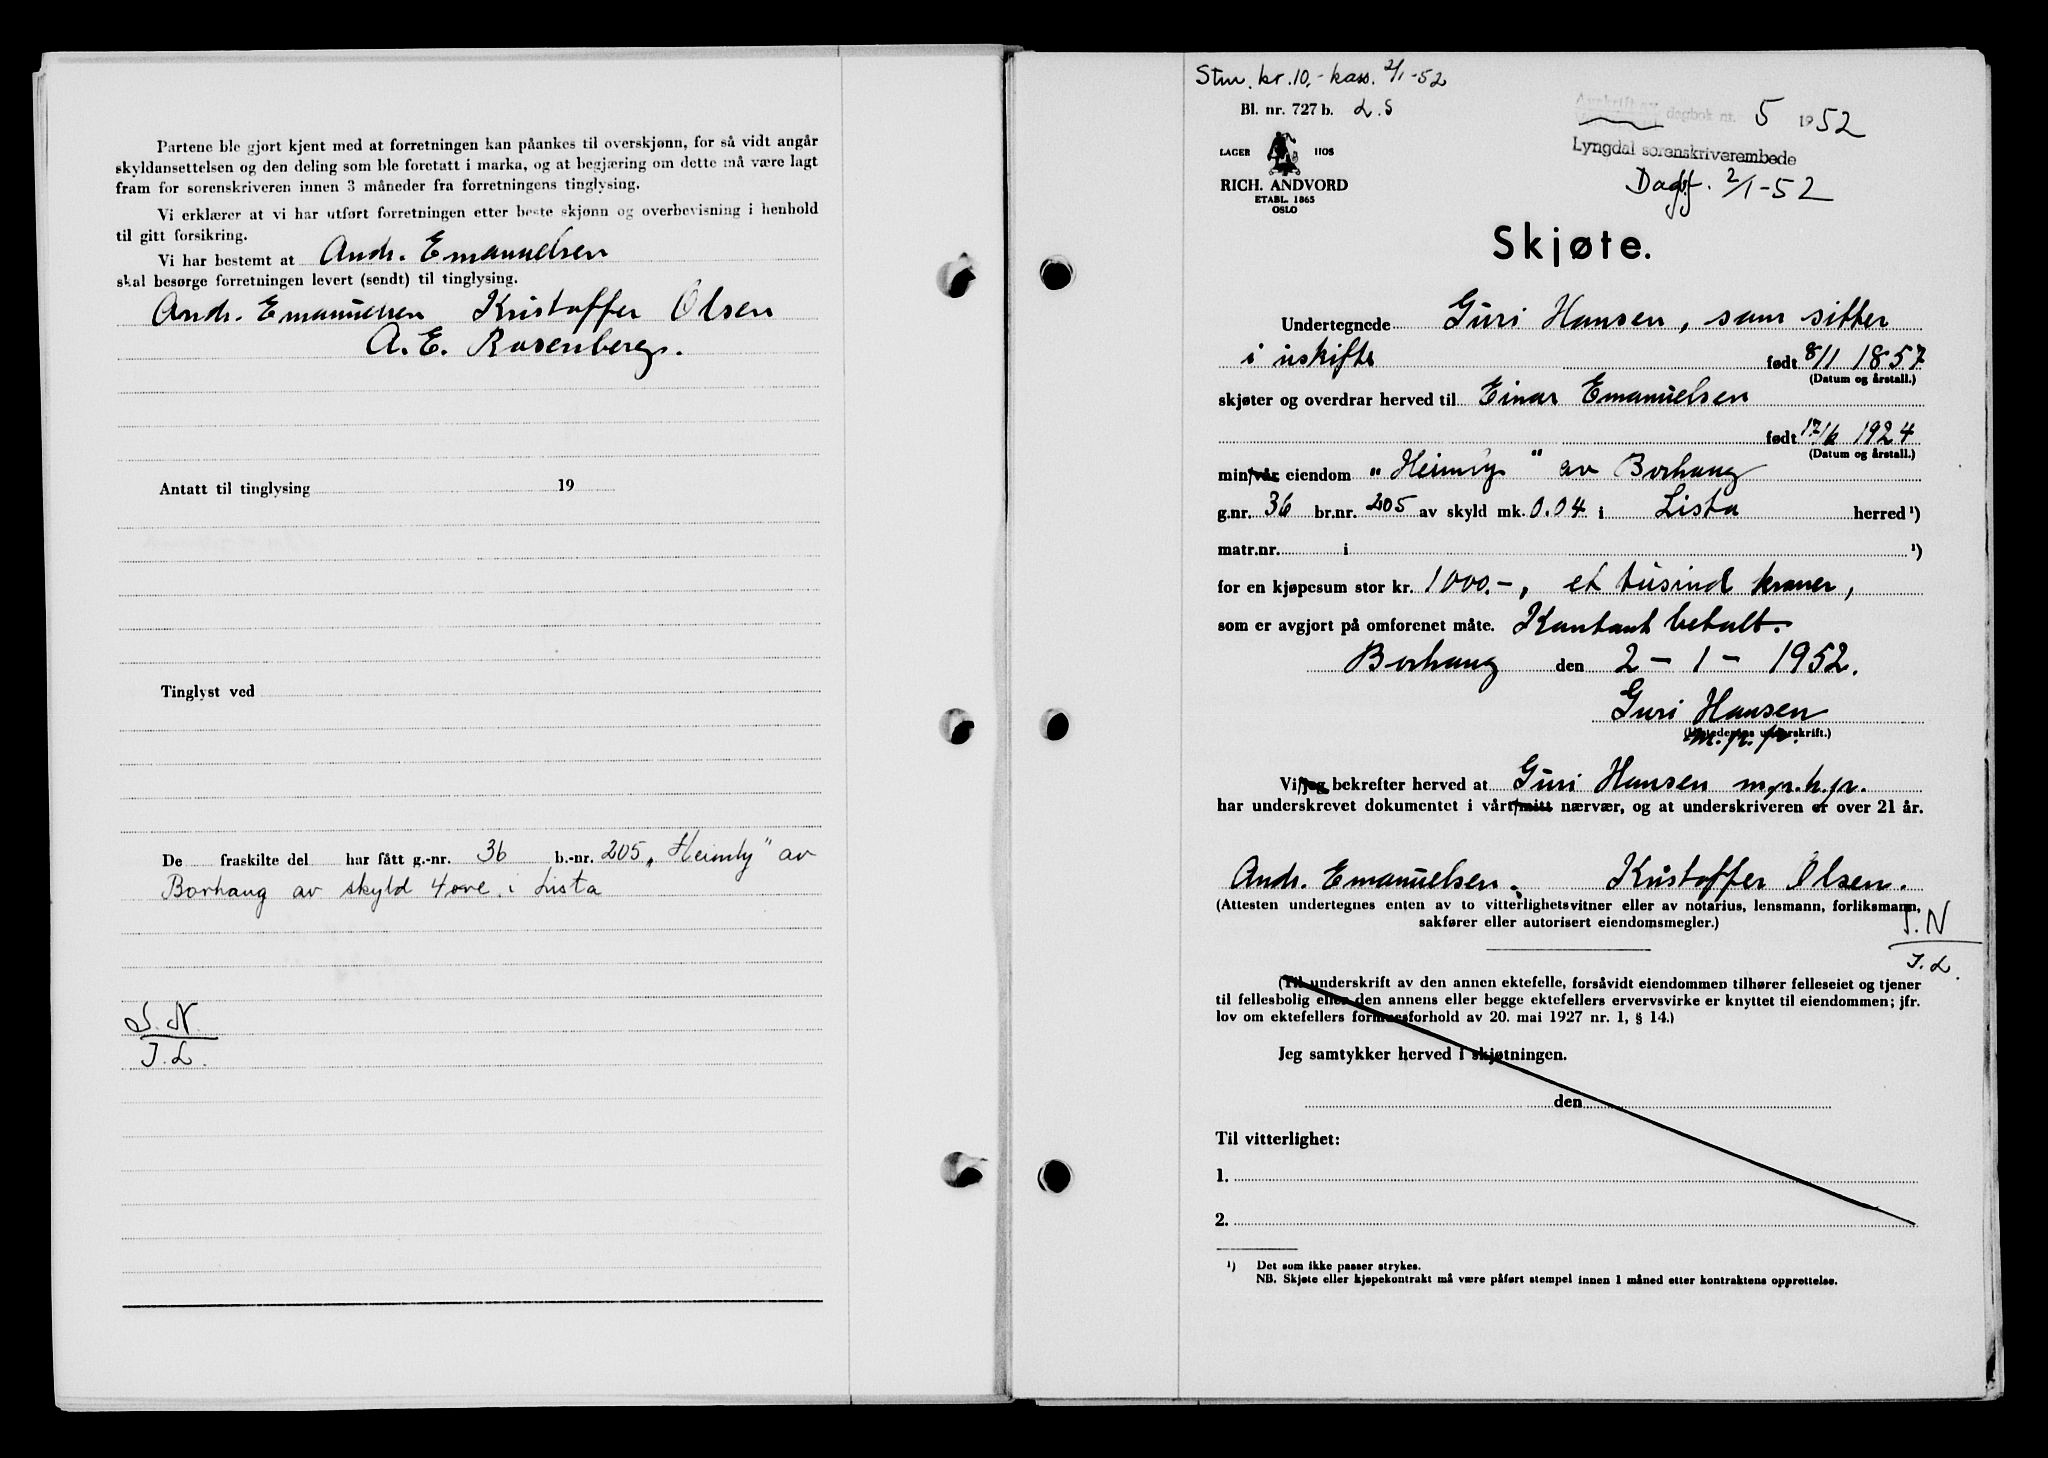 Partene ble gjort kjent med at forretningen kan påankes til overskjønn, for så vidt angår
skyldansettelsen og den deling som ble foretatt i marka, og at begjæring om dette må være lagt
fram for sorenskriveren innen 3 måneder fra forretningens tinglysing.
Vi erklærer at vi har utført forretningen etter beste skjønn og overbevisning i henhold
til gitt forsikring.
Vi har bestemt at Andr. Emanuelsen
skal besørge forretningen levert (sendt) til tinglysing.
Andr. Emanuelsen Kristoffer Olsen
A. E. Rosenberg.
Antatt til tinglysing 19
Tinglyst ved
De fraskilte del har fått g.-nr. 36 b.-nr. 205 „Heimly" av
Borhaug av skyld 4 øre i Lista
S. N.
J. L.
Stm. kr. 10,- kass. 2/1-52
Bl. nr. 727 b. L.S
dagbok nr. 5 1952
LAGER HOS
RICH. ANDVORD
ETABL. 1865
OSLO
Lyngdal sorenskriverembede
Dagbf. 2/1-52
Skjøte.
Undertegnede Guri Hansen, som sitter
i uskifte født 8/11 1857
(Datum og årstall.)
skjøter og overdrar herved til Einar Emanuelsen
født 17/6 1924
(Datum og årstall.)
min/vår eiendom „Heimly" av Borhaug
g.nr. 36 br.nr. 205 av skyld mk. 0.04 i Lista herred ¹)
matr.nr. i ¹)
for en kjøpesum stor kr. 1000.-, et tusind kroner,
som er avgjort på omforenet måte. Kontant betalt.
Borhaug den 2 - 1 - 1952.
Guri Hansen
(Utstederens underskrift.)
m.p.p.
Vi/jeg bekrefter herved at Guri Hansen m.p.h.p.
har underskrevet dokumentet i vårt/mitt nærvær, og at underskriveren er over 21 år.
Andr. Emanuelsen. Kristoffer Olsen.
(Attesten undertegnes enten av to vitterlighetsvitner eller av notarius, lensmann, forliksmann,
sakfører eller autorisert eiendomsmegler.)
S. N
J. L.
(Til underskrift av den annen ektefelle, forsåvidt eiendommen tilhører felleseiet og tjener
til fellesbolig eller den annens eller begge ektefellers ervervsvirke er knyttet til eiendommen; jfr.
lov om ektefellers formuesforhold av 20. mai 1927 nr. 1, § 14.)
Jeg samtykker herved i skjøtningen.
den
Til vitterlighet:
1.
2.
¹) Det som ikke passer strykes.
NB. Skjøte eller kjøpekontrakt må være påført stempel innen 1 måned etter kontraktens opprettelse.